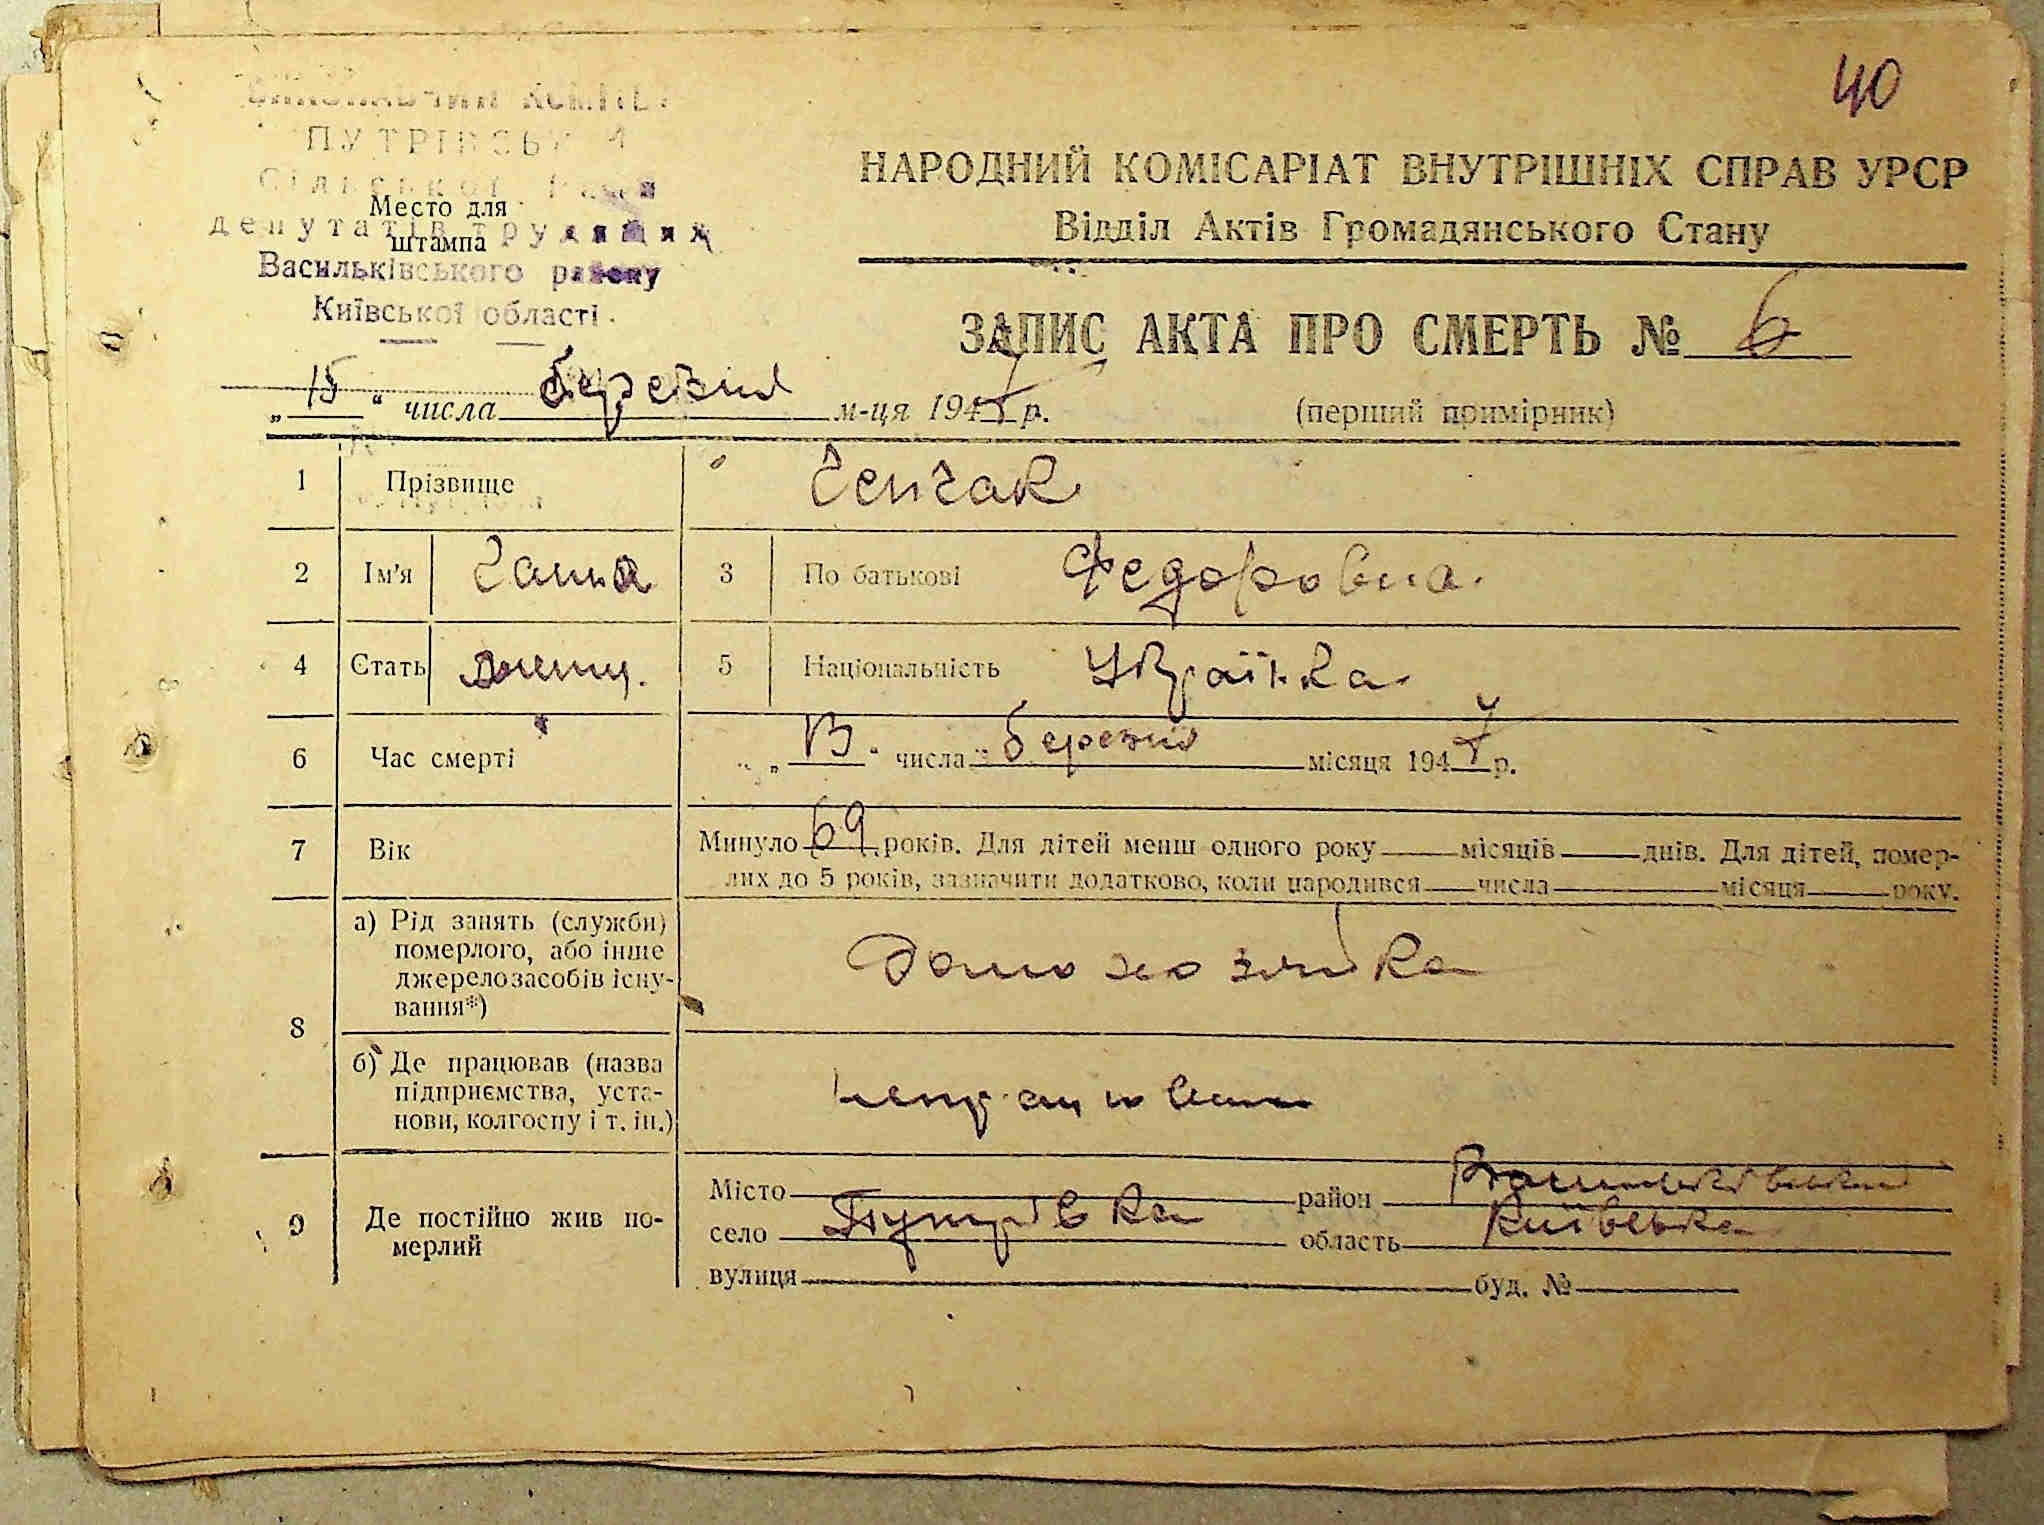 40
ВИКОНАВЧИЙ КОМІТЕТ
ПУТРІВСЬКОЇ
Сільської Ради
депутатів трудящих
Васильківського району
Київської області
Место для
штампа
НАРОДНИЙ КОМІСАРІАТ ВНУТРІШНІХ СПРАВ УРСР
Відділ Актів Громадянського Стану
ЗАПИС АКТА ПРО СМЕРТЬ № 6
„15“ числа березня м-ця 1947 р.
(перший примірник)
1 Прізвище
2 Ім'я Ганна 3 По батькові Федоровна
4 Стать женщ. 5 Національність Українка
6 Час смерті „13“ числа березня місяця 1947 р.
7 Вік Минуло 69 років. Для дітей менш одного року місяців днів. Для дітей, помер-
лих до 5 років, зазначити додатково, коли народився числа місяця року.
8 а) Рід занять (служби)
померлого, або інше
джерело засобів існу-
вання*)
Домохозяйка
б) Де працював (назва
підприємства, уста-
нови, колгоспу і т. ін.)
непрацювала
9 Де постійно жив по-
мерлий
Місто район Васильківський
село Путрівка область Київська
вулиця буд. №